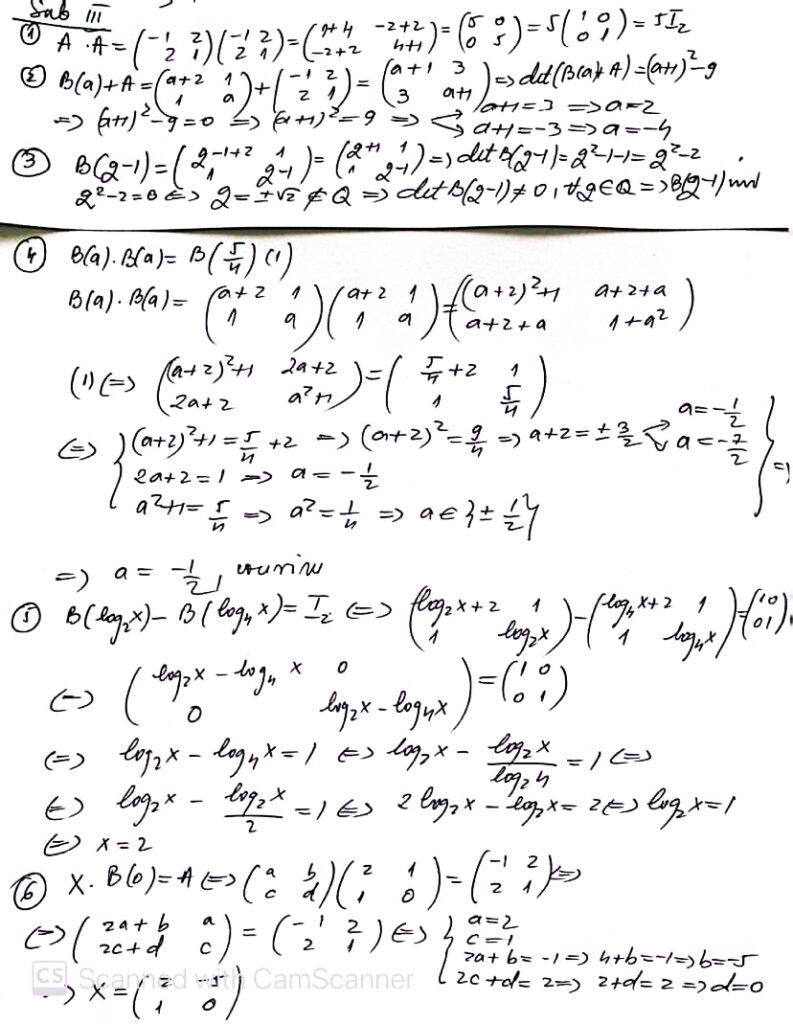 Sub III
① A·A=(-1 2 / 2 1)(-1 2 / 2 1)=(1+4 -2+2 / -2+2 4+1)=(5 0 / 0 5)=5(1 0 / 0 1)=5I₂
② B(a)+A=(a+2 1 / 1 a)+(-1 2 / 2 1)=(a+1 3 / 3 a+1)=>det(B(a)+A)=(a+1)²-9
=> (a+1)²-9=0 => (a+1)²=9 => a+1=3 =>a=2
a+1=-3=>a=-4
③ B(q-1)=(q-1+2 1 / 1 q-1)=(q+1 1 / 1 q-1)=>det B(q-1)=q²-1-1=q²-2
q²-2=0 <=> q=±√2 ∉ Q => det B(q-1)≠0, ∀q∈Q =>B(q-1) inv
④ B(a).B(a)= B(5/4) (1)
B(a)·B(a)= (a+2 1 / 1 a)(a+2 1 / 1 a)=((a+2)²+1 a+2+a / a+2+a 1+a²)
(1)<=> ((a+2)²+1 2a+2 / 2a+2 a²+1)=(5/4+2 1 / 1 5/4)
<=> {(a+2)²+1=5/4+2 => (a+2)²=9/4 => a+2=±3/2 a=-1/2
a=-7/2
2a+2=1 => a=-1/2
a²+1=5/4 => a²=1/4 => a∈{±1/2} } =>
=> a=-1/2, convine
⑤ B(log₂x)-B(log₄x)=I₂ <=> (log₂x+2 1 / 1 log₂x)-(log₄x+2 1 / 1 log₄x)=(1 0 / 0 1)
<=> (log₂x-log₄x 0 / 0 log₂x-log₄x)=(1 0 / 0 1)
<=> log₂x-log₄x=1 <=> log₂x - log₂x/log₂4 =1 <=>
<=> log₂x - log₂x/2 =1 <=> 2log₂x-log₂x=2<=>log₂x=1
<=> x=2
⑥ X·B(0)=A <=>(a b / c d)(2 1 / 1 0)=(-1 2 / 2 1)<=>
<=>(2a+b a / 2c+d c)=(-1 2 / 2 1)<=> {a=2
c=1
2a+b=-1=>4+b=-1=>b=-5
2c+d=2=> 2+d=2=>d=0
=> X=(2 -5 / 1 0)
CS Scanned with CamScanner